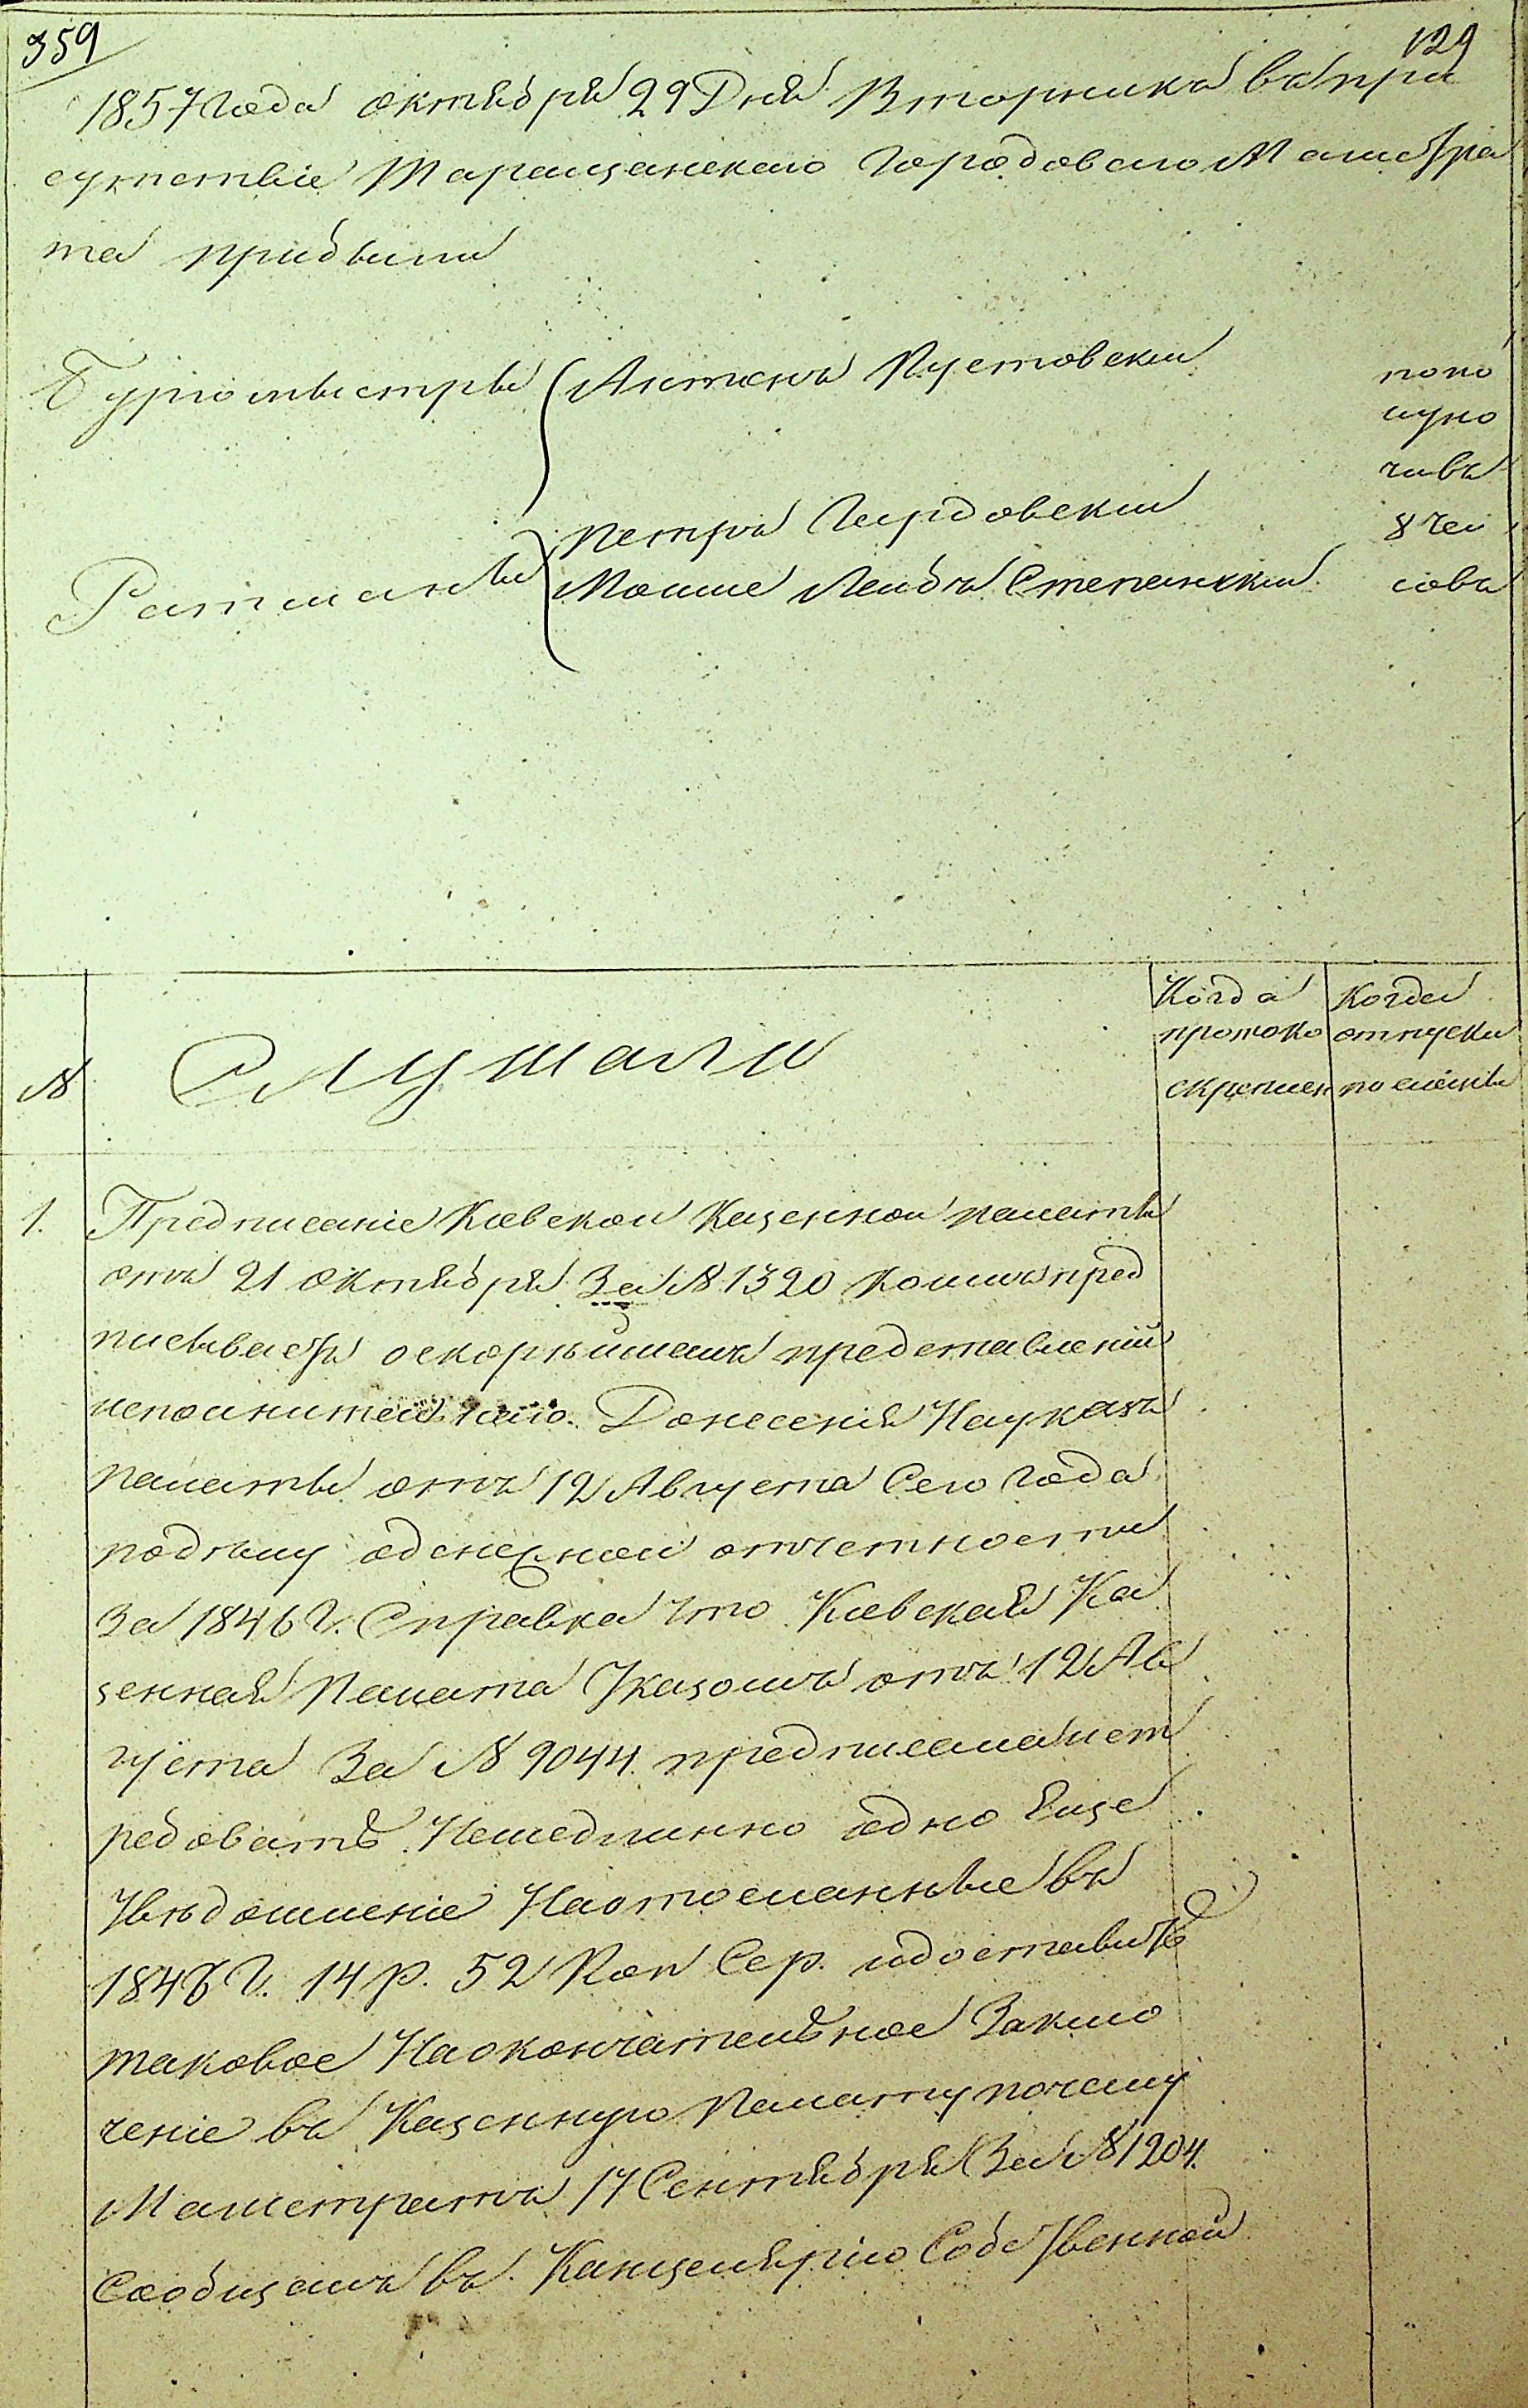 359
129
1857 года октября 29 Дня Вторникъ въ при
сутствіе Таращанскаго Городоваго Магистра
та прибыли
Бургомистры Антонъ Пустовскій
попо
луно
чивъ
Петръ Гердовский
8 Час
Ратманы Мошие Лейбъ Степанскии
совъ
№
Слушали
Когда протоко скреплен
Когда отпуски посланы
1. Предписаніе Киевской Казенной палаты
отъ 21 октября За № 1320 коимъ пред
писываетъ оскорѣйшемъ представленіи
исполнительнаго Донесенія Науказъ
палаты отъ 12 Августа Сего года
поделу оденежной отчетности
За 1846 г. Справка что Киевская Ка
зенная Палата Указомъ отъ 12 Ав
густа За № 9044 предписала ист
ребовать Немедлинно одно Еще
Увѣдомленіе Наотосланные въ
1846 г. 14 р. 52 Коп Сер. идоставить
таковое Наокончательное Заклю
ченіе въ Казенную Палату почему
Магистратъ 17 Сентября За № 1204
Сообщалъ въ Канцелярію Собственной